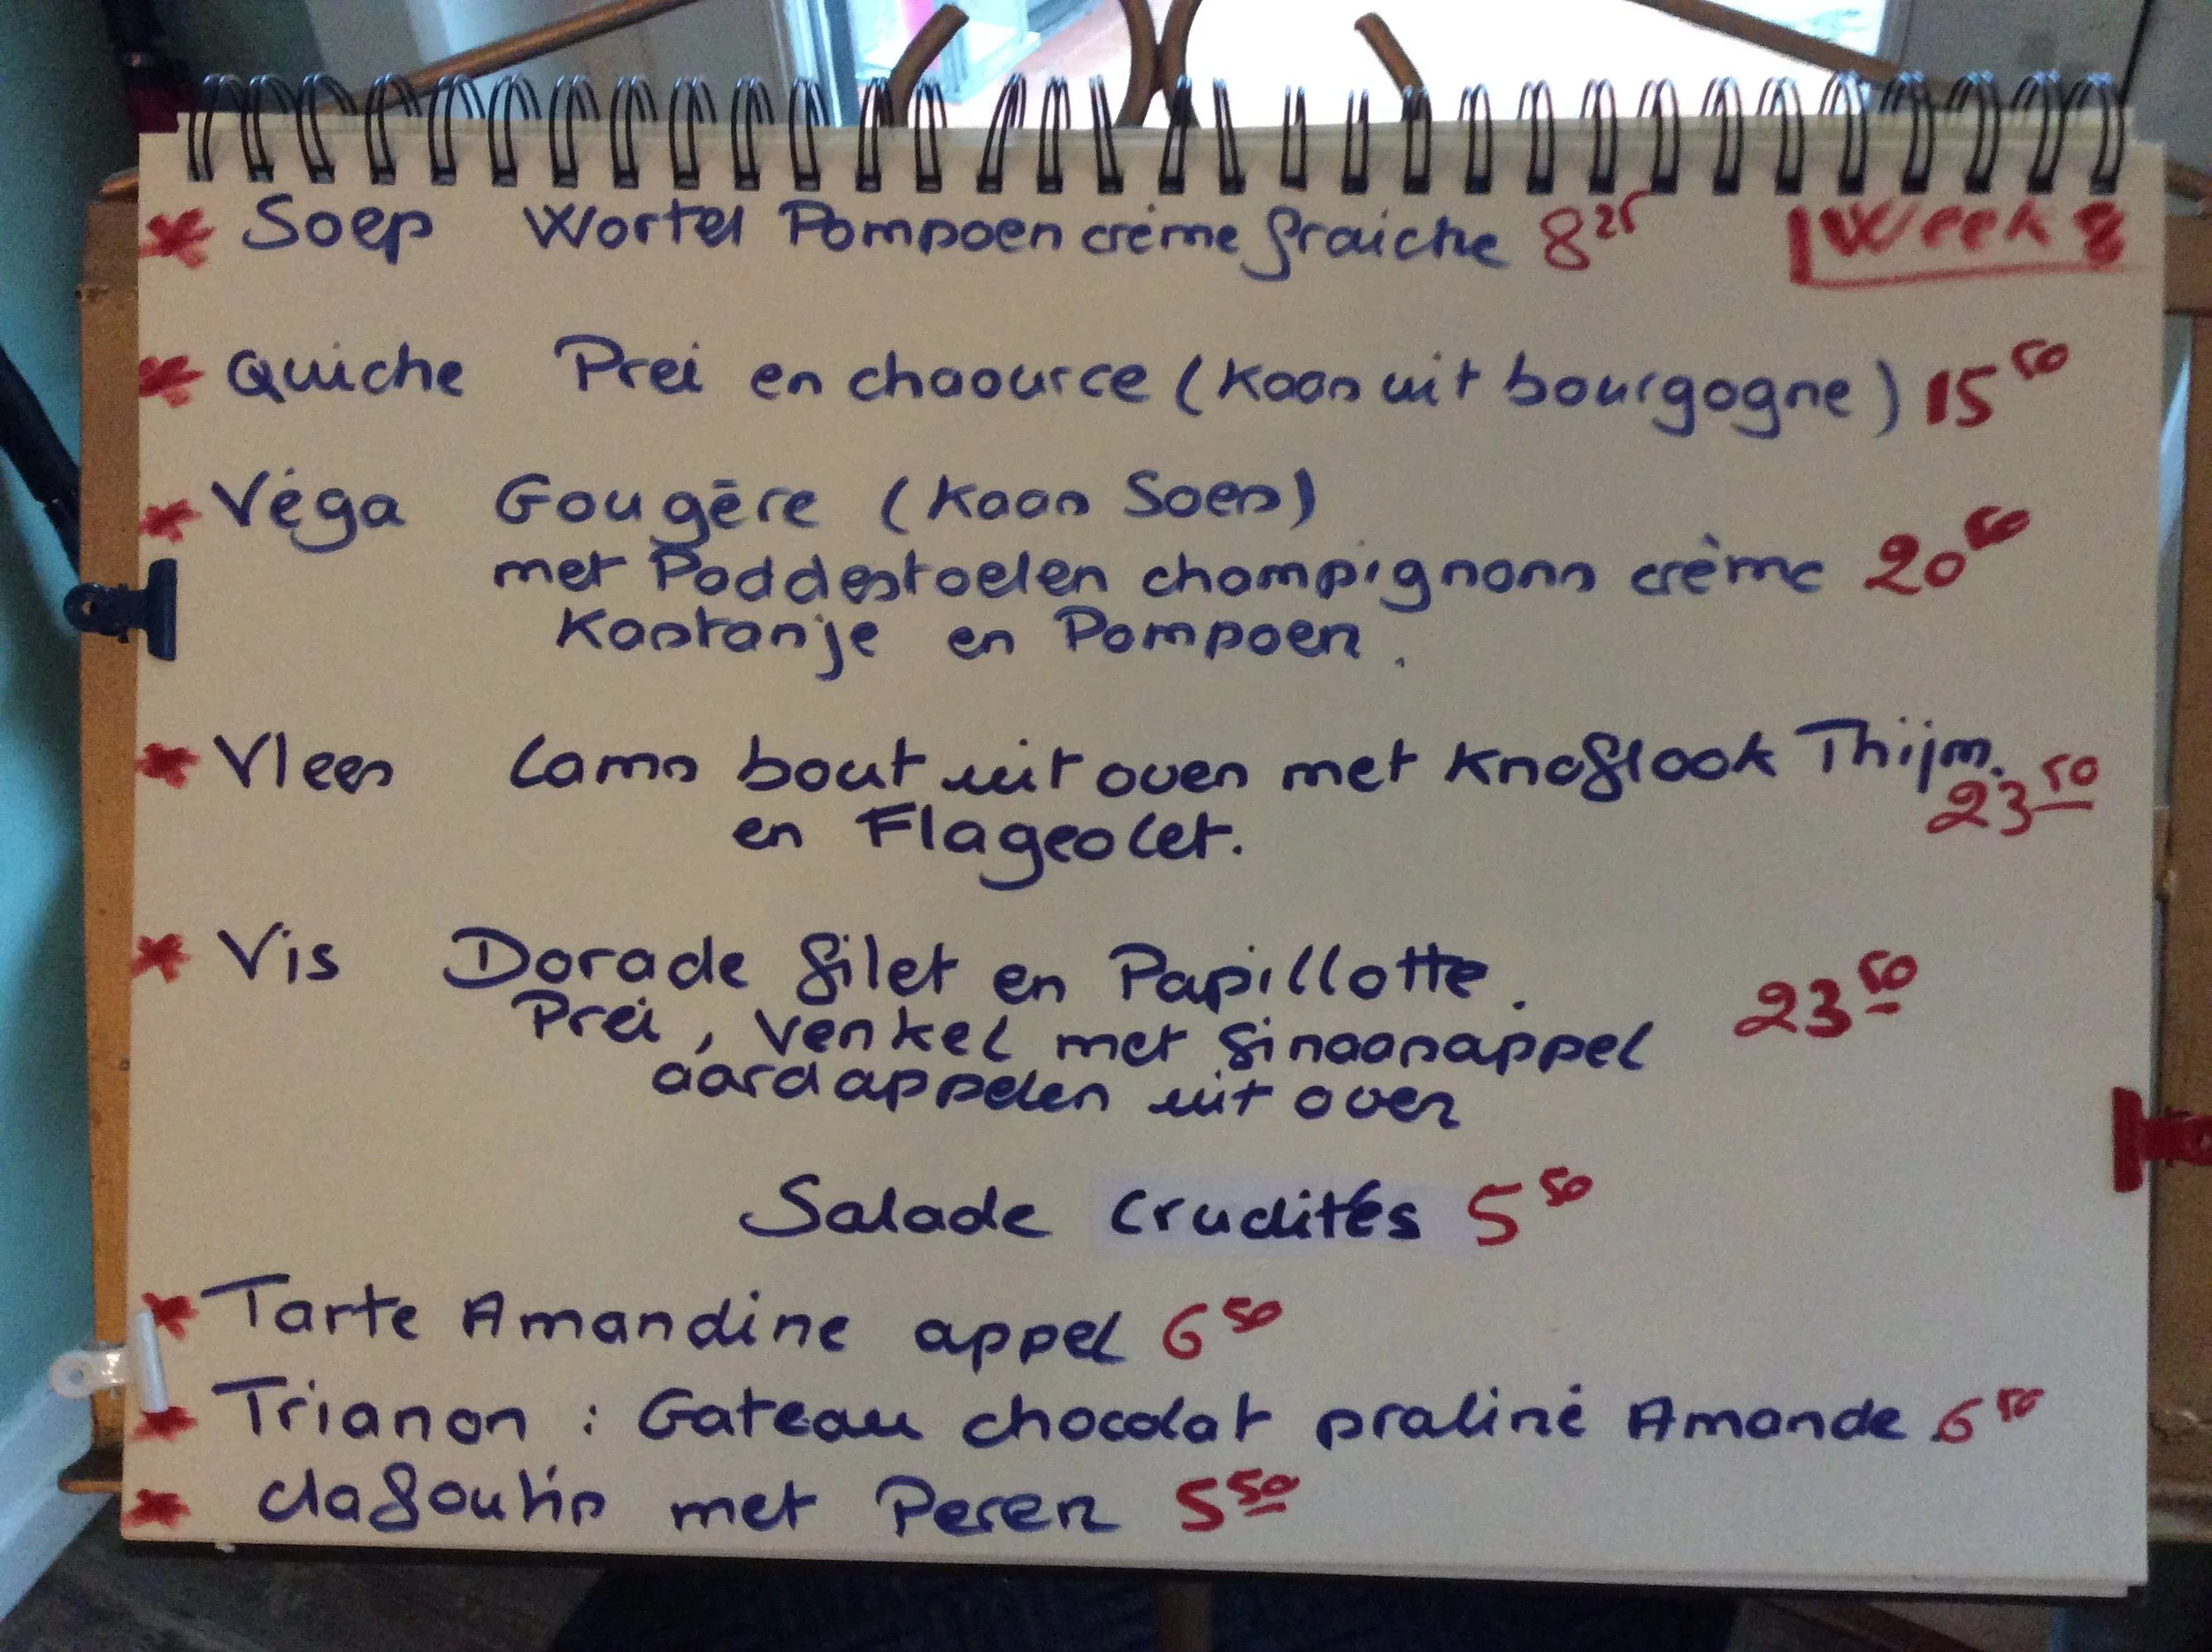 Soep Wortel Pompoen crème fraiche 8²⁵ Week 8
Quiche Prei en chaource (Kaas uit bourgogne) 15⁵⁰
Véga Gougère (Kaas Soes)
met Paddestoelen champignons crème 20⁵⁰
Kastanje en Pompoen.
Vlees Lams bout uit oven met Knoflook Thijm.
en Flageolet. 23⁵⁰
Vis Dorade filet en Papillotte.
Prei, Venkel met Sinaasappel 23⁵⁰
aardappelen uit oven
Salade crudités 5⁵⁰
Tarte Amandine appel 6⁵⁰
Trianon : Gateau chocolat praliné Amande 6⁵⁰
clafoutis met Peren 5⁵⁰